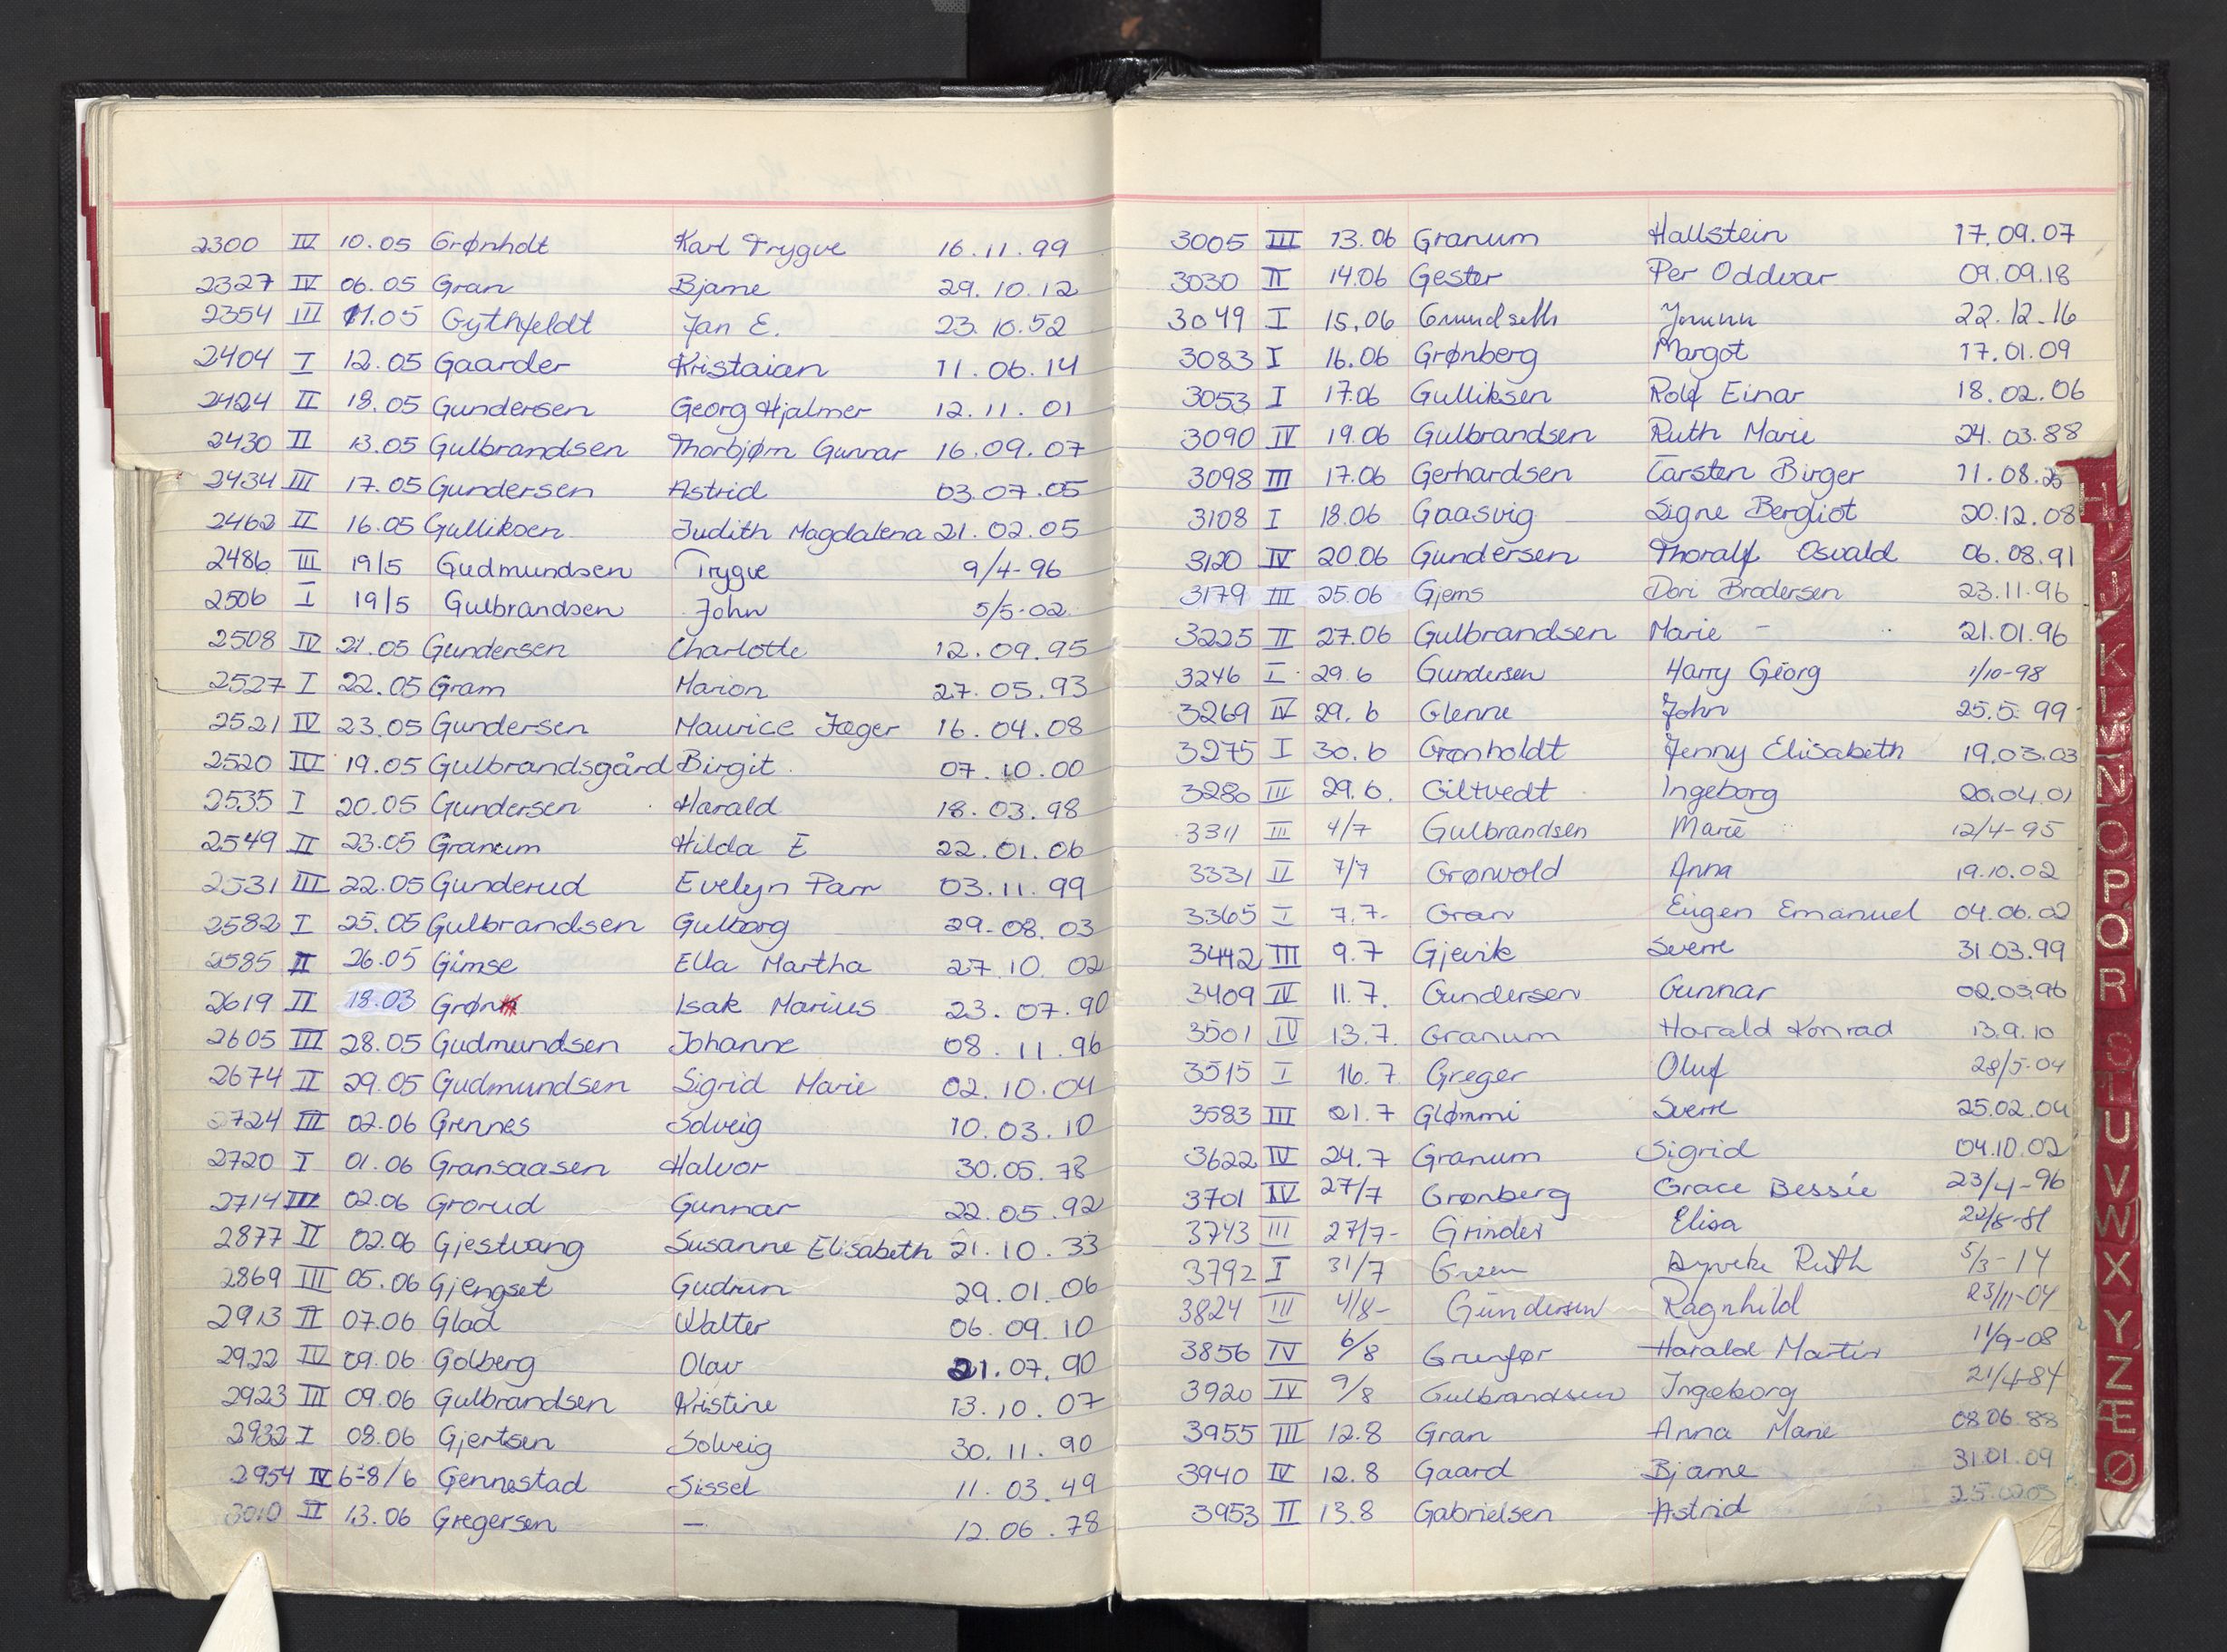 2300 IV 10.05 Grønholt Karl Trygve 16.11.99
2327 IV 06.05 Gran Bjarne 29.10.12
2354 III 11.05 Gythfeldt Jan E. 23.10.52
2404 I 12.05 Gaarder Kristaian 11.06.14
2424 II 18.05 Gundersen Georg Hjalmer 12.11.01
2430 II 13.05 Gulbrandsen Thorbjørn Gunnar 16.09.07
2434 III 17.05 Gundersen Astrid 03.07.05
2462 II 16.05 Gulliksen Judith Magdalena 21.02.05
2486 III 19/5 Gudmundsen Trygve 9/4-96
2506 I 19/5 Gulbrandsen John 5/5-02
2508 IV 21.05 Gundersen Charlotte 12.09.95
2527 I 22.05 Gram Marion 27.05.93
2521 IV 23.05 Gundersen Maurice Jæger 16.04.08
2520 III 19.05 Gulbrandsgård Birgit 07.10.00
2535 I 20.05 Gundersen Harald 18.03.98
2549 II 23.05 Granum Hilda E 22.01.06
2531 III 22.05 Gunderud Evelyn Parr 03.11.99
2582 I 25.05 Gulbrandsen Gulborg 29-08.03
2585 II 26.05 Gimse Ella Martha 27.10.02
2619 II 18.03 Grøn Isak Marius 23.07.90
2605 III 28.05 Gudmundsen Johanne 08.11.96
2674 II 29.05 Gudmundsen Sigrid Marie 02.10.04
2724 III 02.06 Grennes Solveig 10.03.10
2720 I 01.06 Gransaasen Halvor 30.05.78
2714 III 02.06 Grorud Gunnar 22.05.92
2877 II 02.06 Gjestvang Susanne Elisabeth 21.10.33
2869 III 05.06 Gjengset Gudrun 29.01.06
2913 II 07.06 Glad Walter 06.09.10
2922 IV 09.06 Golberg Olav 21.07.90
2923 III 09.06 Gulbrandsen Kristine 13.10.07
2932 I 08.06 Gjertsen Solveig 30.11.90
2954 IV 6-8/6 Gennestad Sissel 11.03.49
3010 II 13.06 Gregersen — 12.06.78
3005 III 13.06 Granum Hallstein 17.09.07
3030 II 14.06 Gester Per Oddvar 09.09.18
3049 I 15.06 Grundseth Jorunn 22.12.16
3083 I 16.06 Grønberg Margot 17.01.09
3053 I 17.06 Gulliksen Rolf Einar 18.02.06
3090 IV 19.06 Gulbrandsen Ruth Marie 24.03.88
3098 III 17.06 Gerhardsen Carsten Birger 11.08.25
3108 I 18.06 Gaasvig Signe Bergliot 20.12.08
3120 IV 20.06 Gundersen Thoralf Osvald 06.08.91
3179 III 25.06 Gjems Dori Brodersen 23.11.96
3225 II 27.06 Gulbrandsen Marie - 21.01.96
3246 I 29.6 Gundersen Harry Georg 1/10-98
3269 IV 29.6 Glenne John 25.5.99
3275 I 30.6 Grønholdt Jenny Elisabeth 19.03.03
3280 III 29.6. Giltvedt Ingeborg 20.04.01
3311 III 4/7 Gulbrandsen Marie 12/4-95
3331 II 7/7 Grønvold Anna 19.10.02
3365 I 7.7- Gran Eugen Emanuel 04.06.02
3442 III 9.7 Gjevik Sverre 31.03.99
3409 IV 11.7. Gundersen Gunnar 02.03.96
3501 IV 13.7. Granum Harald Konrad 13.9.10
3515 I 16.7 Greger Oluf 28/5-04
3583 III 21.7 Glømmi Sverre 25.02.04
3622 IV 24.7 Granum Sigrid 04.10.02
3701 IV 27/7 Grønberg Grace Bessie 23/4-96
3743 III 27/7- Grinder Elisa
3792 I 31/7 Green Dyveke Ruth 5/3-14
3824 III 4/8- Gundersen Ragnhild 23/11-04
3856 IV 6/8 Grunfør Harald Martin 11/9-08
3920 IV 9/8 Gulbrandsen Ingeborg 21/4-84
3955 III 12.8 Gran Anna Marie 08.06.88
3940 IV 12.8 Gaard Bjarne 31.01.09
3953 II 13.8 Gabrielsen Astrid 25.02.05
H
I
J
K
L
M
N
O
P
Q
R
S
T
U
V
W
X
Y
Z
Æ
Ø